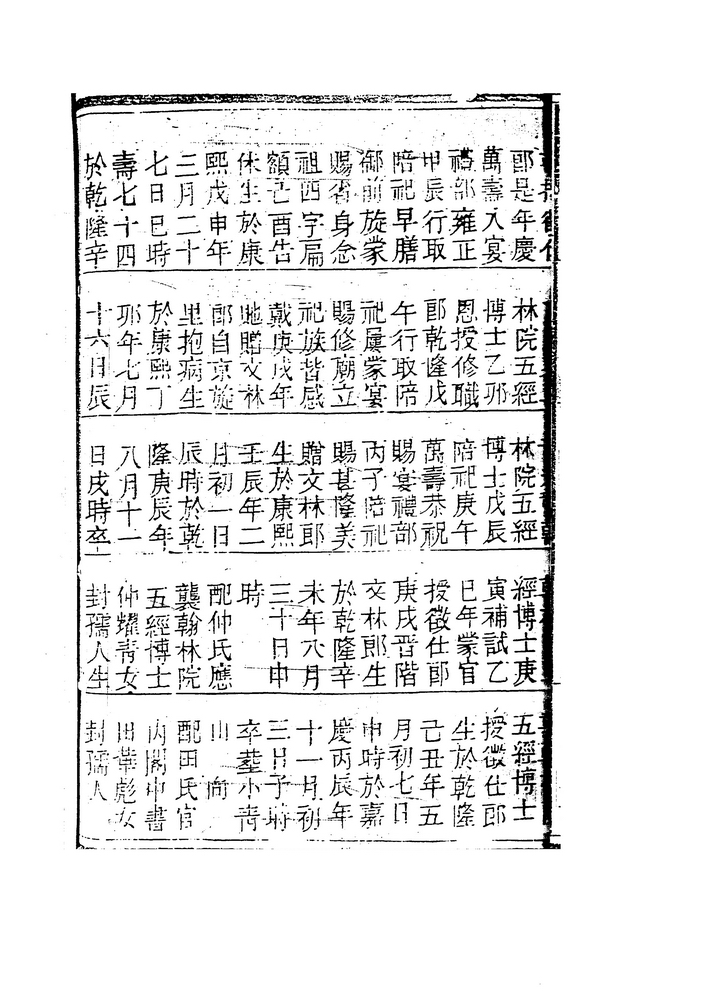 郎是年慶
萬壽入宴
禮部雍正
甲辰行取
陪祀早膳
御前旋蒙
賜省身念
祖四字扁
額己酉告
休生於康
熙戊申年
三月二十
七日巳時
壽七十四
於乾隆辛
林院五經
博士乙卯
恩授修職
郎乾隆戊
午行取陪
祀屢蒙宴
賜修廟立
祀族皆感
戴庚戌年
馳贈文林
郎自京旋
里抱病生
於康熙丁
卯年七月
十六日辰
林院五經
博士戊辰
陪祀庚午
萬壽恭祝
賜宴禮部
丙子陪祀
賜甚隆美
贈文林郎
生於康熙
壬辰年二
月初一日
辰時於乾
隆庚辰年
八月十一
日戌時卒
經博士庚
寅補試乙
巳年蒙官
授徵仕郎
庚戌晋階
文林郎生
於乾隆辛
未年六月
三十日申
時
配仲氏應
襲翰林院
五經博士
仲耀青女
封孺人生
五經博士
授徵仕郎
生於乾隆
己丑年五
月初七日
申時於嘉
慶丙辰年
十一月初
三日子時
卒塟小青
山向
配田氏官
内閣中書
田葉彪女
封孺人